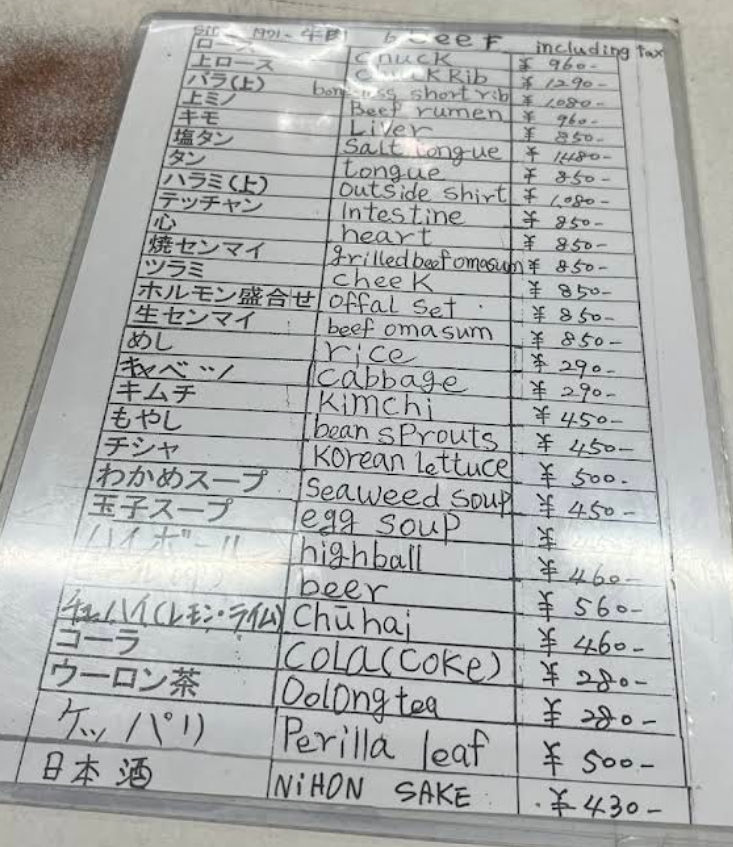 牛肉 beef including tax
ロース Chuck ¥960-
上ロース Chuck Rib ¥1290-
バラ(上) boneless short rib ¥1,080-
上ミノ Beef rumen ¥960-
キモ Liver ¥850-
塩タン Salt tongue ¥1480-
タン tongue ¥850-
ハラミ(上) outside shirt ¥1,080-
テッチャン Intestine ¥850-
心 heart ¥850-
焼センマイ grilled beef omasum ¥850-
ツラミ cheek ¥850-
ホルモン盛合せ offal set ¥850-
生センマイ beef omasum ¥850-
めし rice ¥290-
キャベツ cabbage ¥290-
キムチ Kimchi ¥450-
もやし bean sprouts ¥450-
チシャ Korean lettuce ¥500-
わかめスープ Seaweed soup ¥450-
玉子スープ egg soup ¥
ハイボール highball ¥460-
beer ¥560-
チューハイ(レモン・ライム) Chūhai ¥460-
コーラ COLA(COKe) ¥280-
ウーロン茶 Oolong tea ¥280-
ケッパリ Perilla leaf ¥500-
日本酒 NiHON SAKE ¥430-